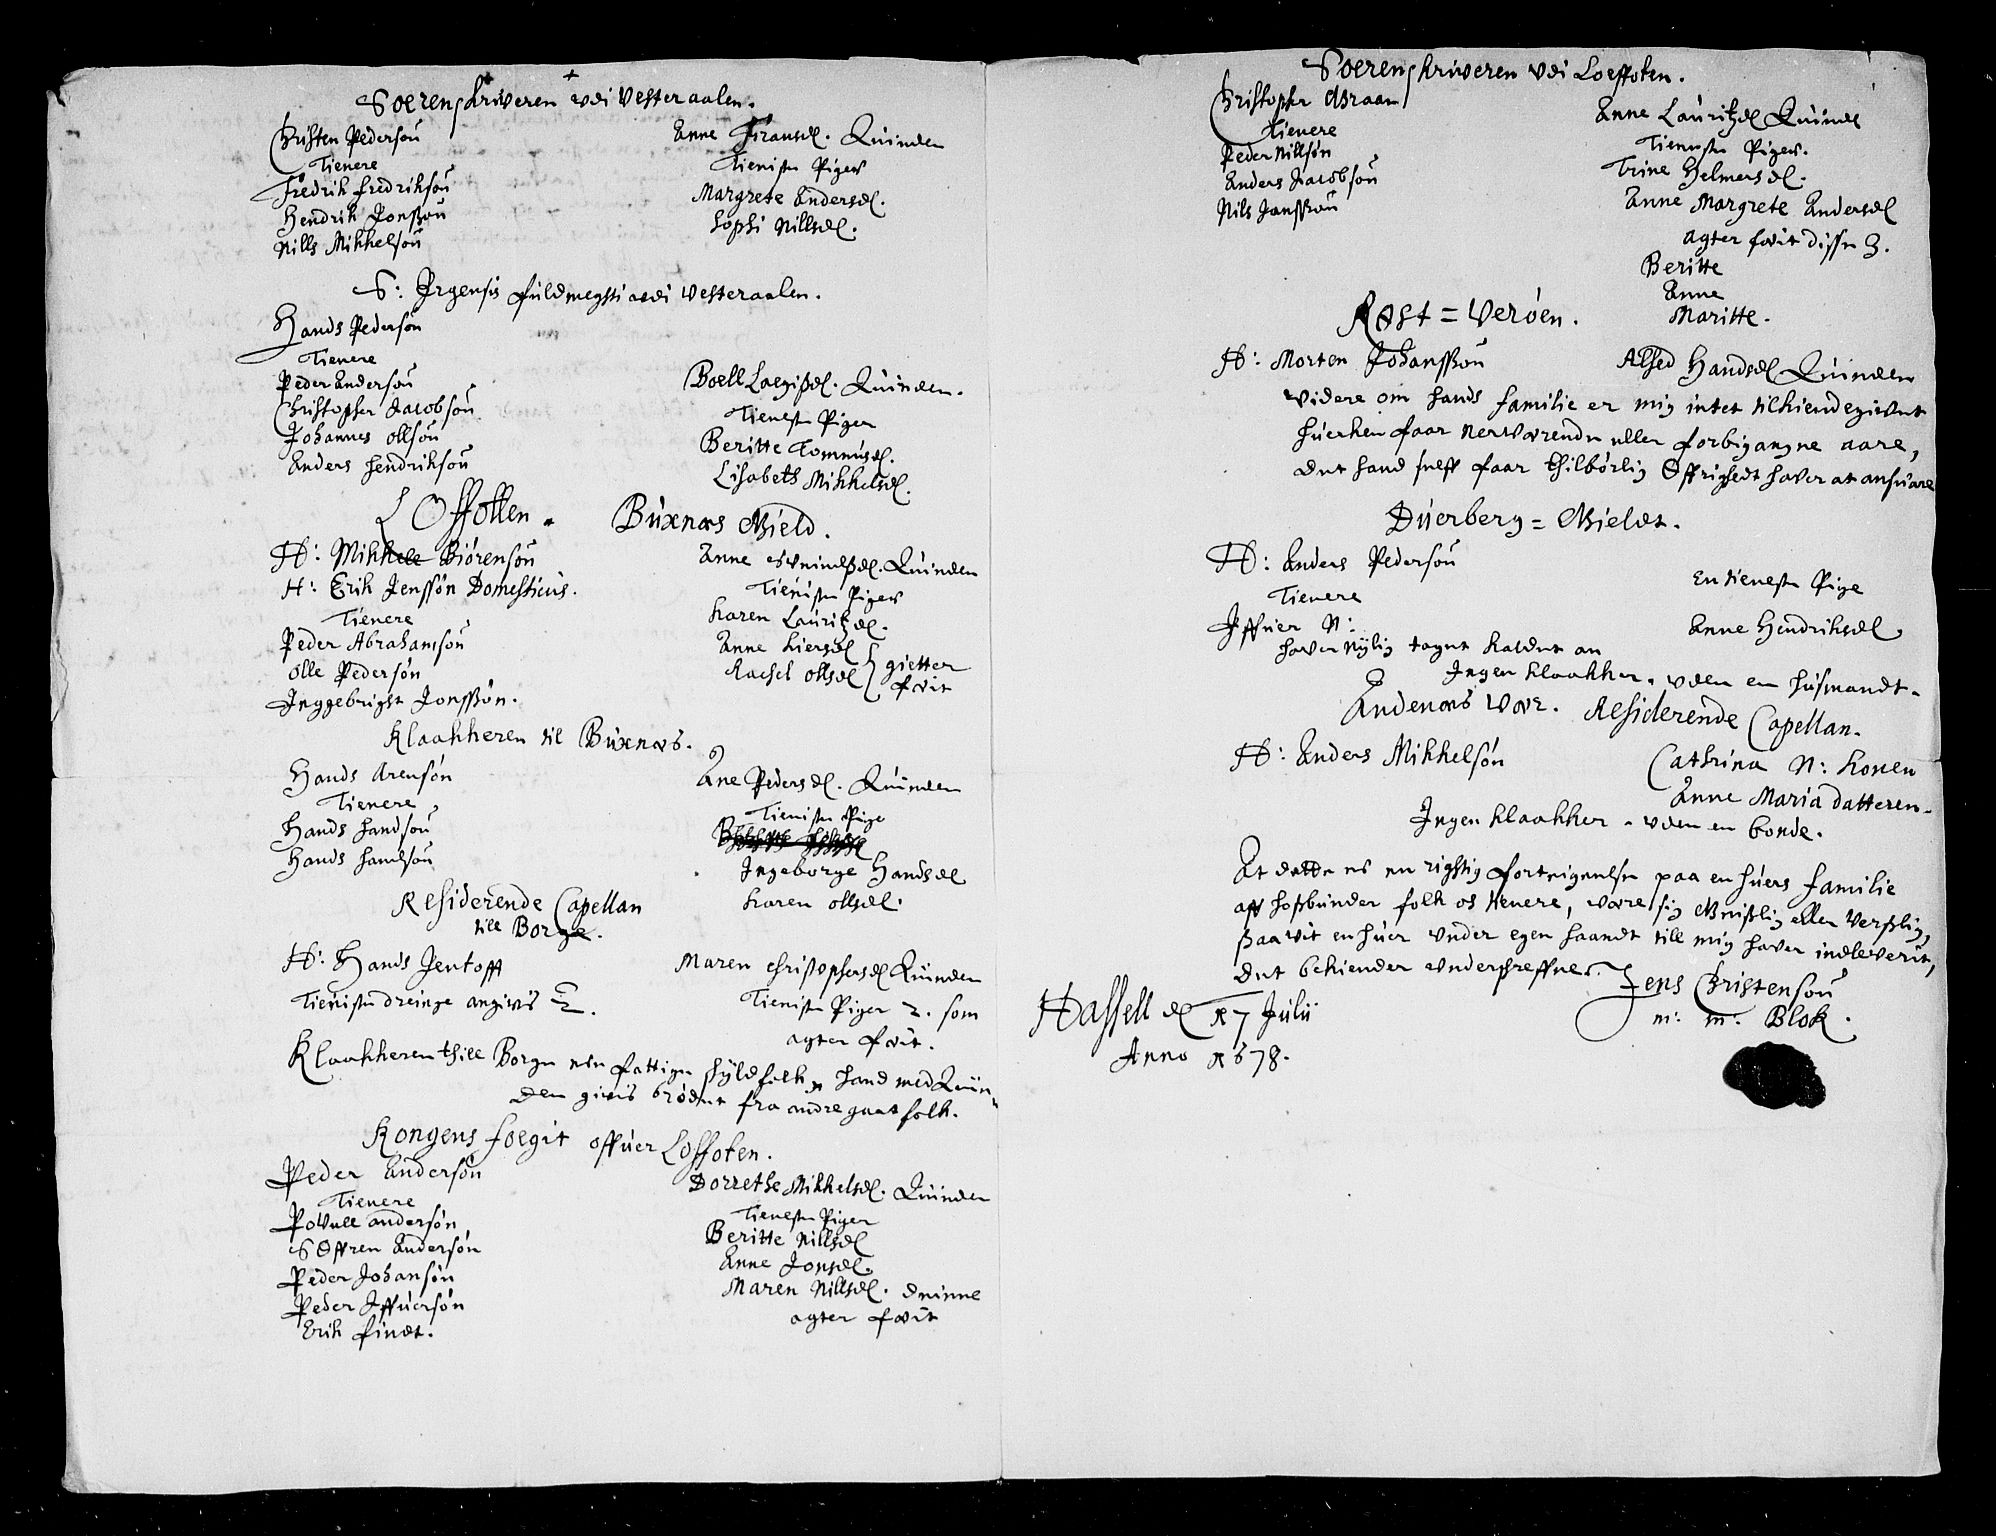 Soerenskriveren udi Vesteraalen.
Christen Pedersøn
Tienere
Fredrik Fredriksøn
Hendrik Jonssøn
Nills Mikkelsøn
Anne Fransdl. Quinden
Tieniste Piger
Margrete Andersdl.
Sophi Nillsdl.
S: Irgensis fuldmegsti udi Vesteraalen.
Hands Pedersøn
Tienere
Peder Andersøn
Christopher Jacobsøn
Johannes Ollsøn
Anders Hendriksøn
Boell Dl. Quinden.
Tieneste Piger
Beritte Tommusdl.
Lisabeth Mikkelsdl.
Loffotten. Buxnæs Gield.
H: Mikkell Biørensøn
H: Erik Jenssøn Domesticus.
Tienere
Peder Abrahamsøn
Olle Pedersøn
Inggebright Jonssøn.
Anne Dl. Quinden
Tieniste Piger
Karen Lauritzdl.
Anne Kiersdl
Rachel Ollsdl } gietter fæit
Klaakkeren til Buxnæs.
Hands Arensøn
Tienere
Hands Handsøn
Hands Handsøn
Ane Pedersdl. Quinden
Tieniste Pige
Ingeborge Handsdl
Karen Ollsdl.
Residerende Capellan
till Borge.
H: Hands Jentofft
Tieniste dreinge angivis 2.
Maren Christophersdl Quinden
Tieniste Piger 2. som
agter fæit.
Klaakkeren thill Borge een fattige skyldfolk, hand med Quin-
den givis brødet fra andre gaat folk.
Kongens foegit offuer Loffoten.
Peder Andersøn
Tienere
Povell Andersøn
Søffren Andersøn
Peder Johansøn
Peder Iffuersøn
Erik Findt.
Dorrethe Mikkelsdl. Quinden
Tieneste Piger
Beritte Nillsdl
Anne Jonsdl.
Maren Nillsdl. denne
agter fæit
Soerenskriveren udi Loeffoten.
Christopher Abraam
Tienere
Peder Nillsøn
Anders Jacobsøn
Nils Janssøn
Anne Lauritzdl Quinde
Tieneste Piger.
Trine Helmersdl.
Anne Margrete Andersdl
agter fæit disse 3.
Beritte
Anne
Maritte.
Røst = Verøen.
H: Morten Johanssøn
Alhed Handsdl Quinden
Videre om hands familie er mig intet tilkiendegivet
huerken faar nerværende eller forbigangne aare,
det hand self faar thilbørlig Øffrighedt haver at ansuare
Duerberg = Gieldt.
H: Anders Pedersøn
Tienere
Iffuer N:
haver nylig taget kaldet an
En tieneste Pige
Anne Hendriksdl.
Ingen klaakker, uden en husmandt.
Andenæs Vær. Residerende Capellan.
H: Anders Mikkelsøn
Cathrina N: Konen
Anne Maria datteren.
Ingen klaakker, uden en bonde.
At dette er en rigtig forteignelse paa en huers familie
aff hossbunder folk os tienere, være sig Geistlig eller Verslig,
saavit en huer under egen haandt till mig haver indleverit,
det bekiender underskreffne.
Jens Christensøn
m: m: Blok.
Hassell dl 17 Julii
Anno 1678.